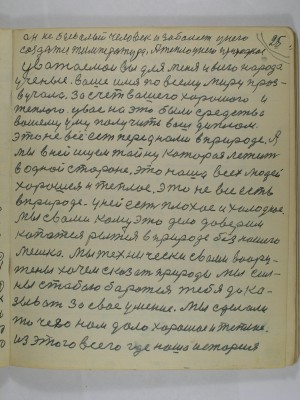 он не бывалый человек и забалеет у него
создати температура. А теплоу ней природное
уважаемои вы для меня и всего народа
ученые. Ваше имя по всему миру проз
вучало. За счет вашего хорошого и
теплого. у вас на это были средства
вашему уму получить ваш диплом.
это не всё есть переднами в природе. А
мы в ней ищем тайну которая лежит
в одной стороне, это наша всех людей
хорошия и теплое, Это не все есть
в природе. у ней есть плохое и холодное.
Мы с вами кому это дело доверим
копатся рытся в природе без нашого
Мы технически с вами воору
жены хочем сказат природы мы сил
ны с табою боротся тебя дока
зыват За свое умение. Мы сделали
то чего нам дало хорошое и теплое.
из этого всего где наша история